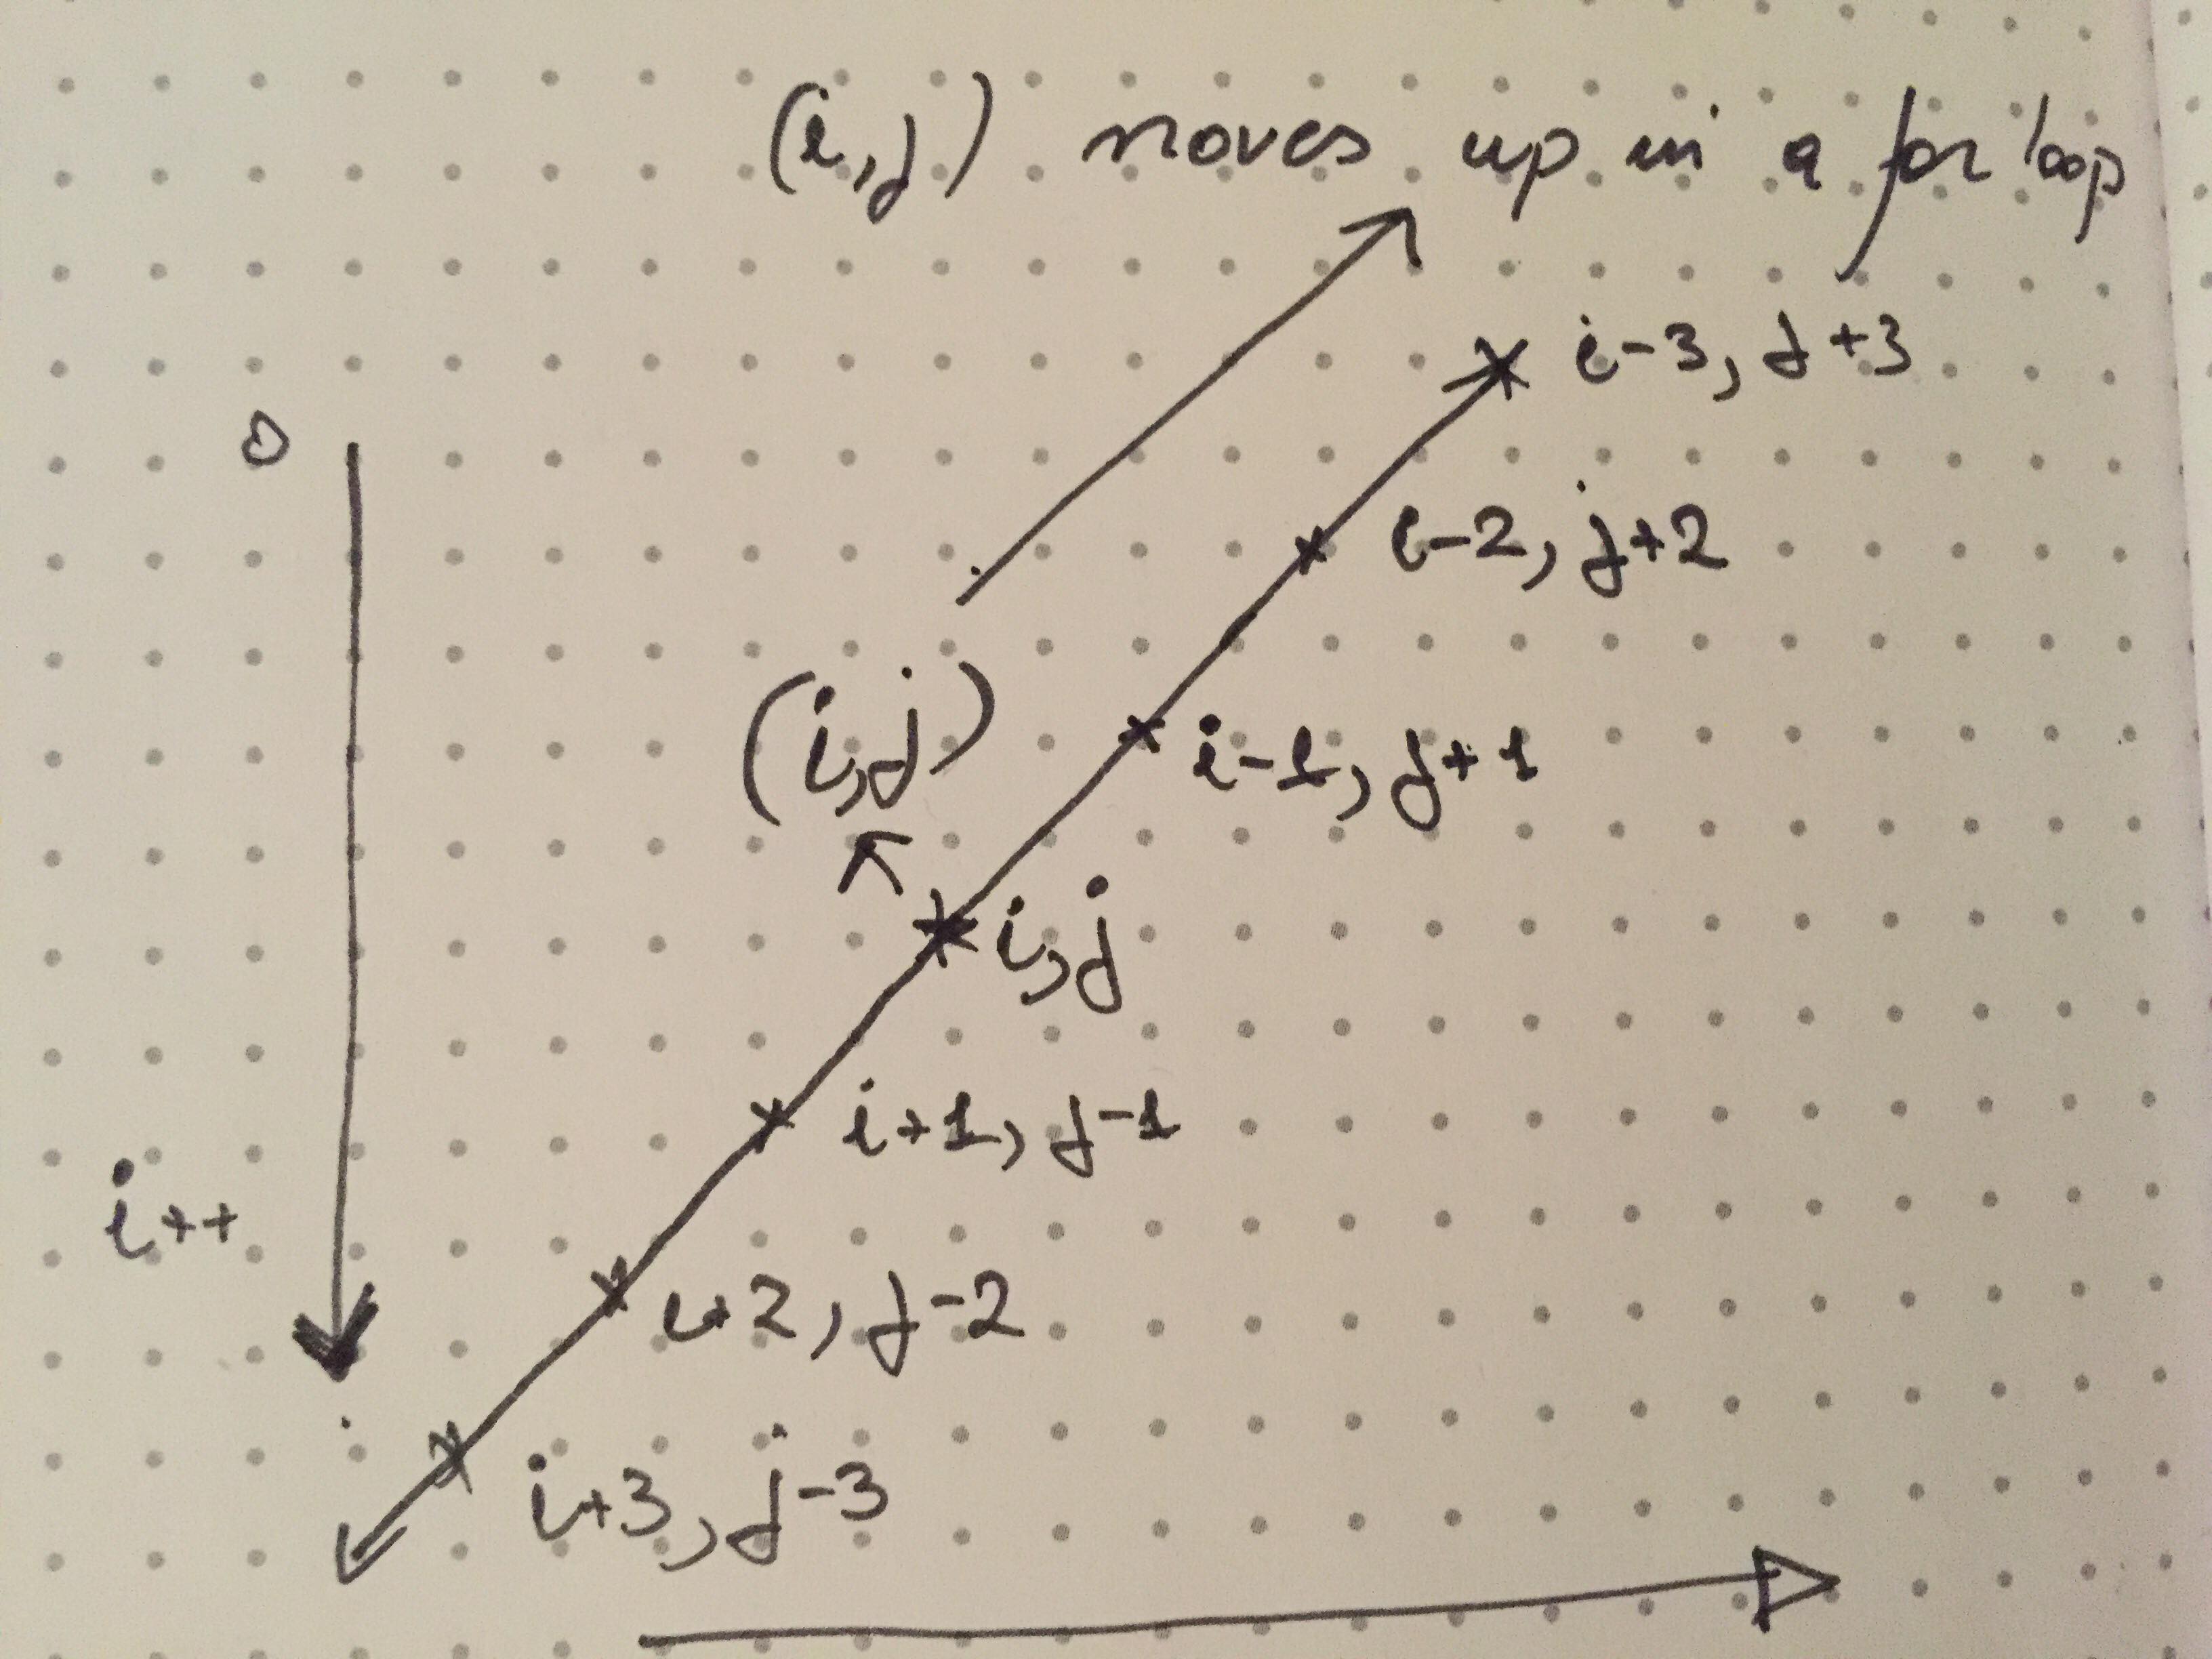 (i,j) moves up in a for loop
i-3, j+3
0
i-2, j+2
(i,j)
i-1, j+1
i,j
i+1, j-1
i++
i+2, j-2
i+3, j-3